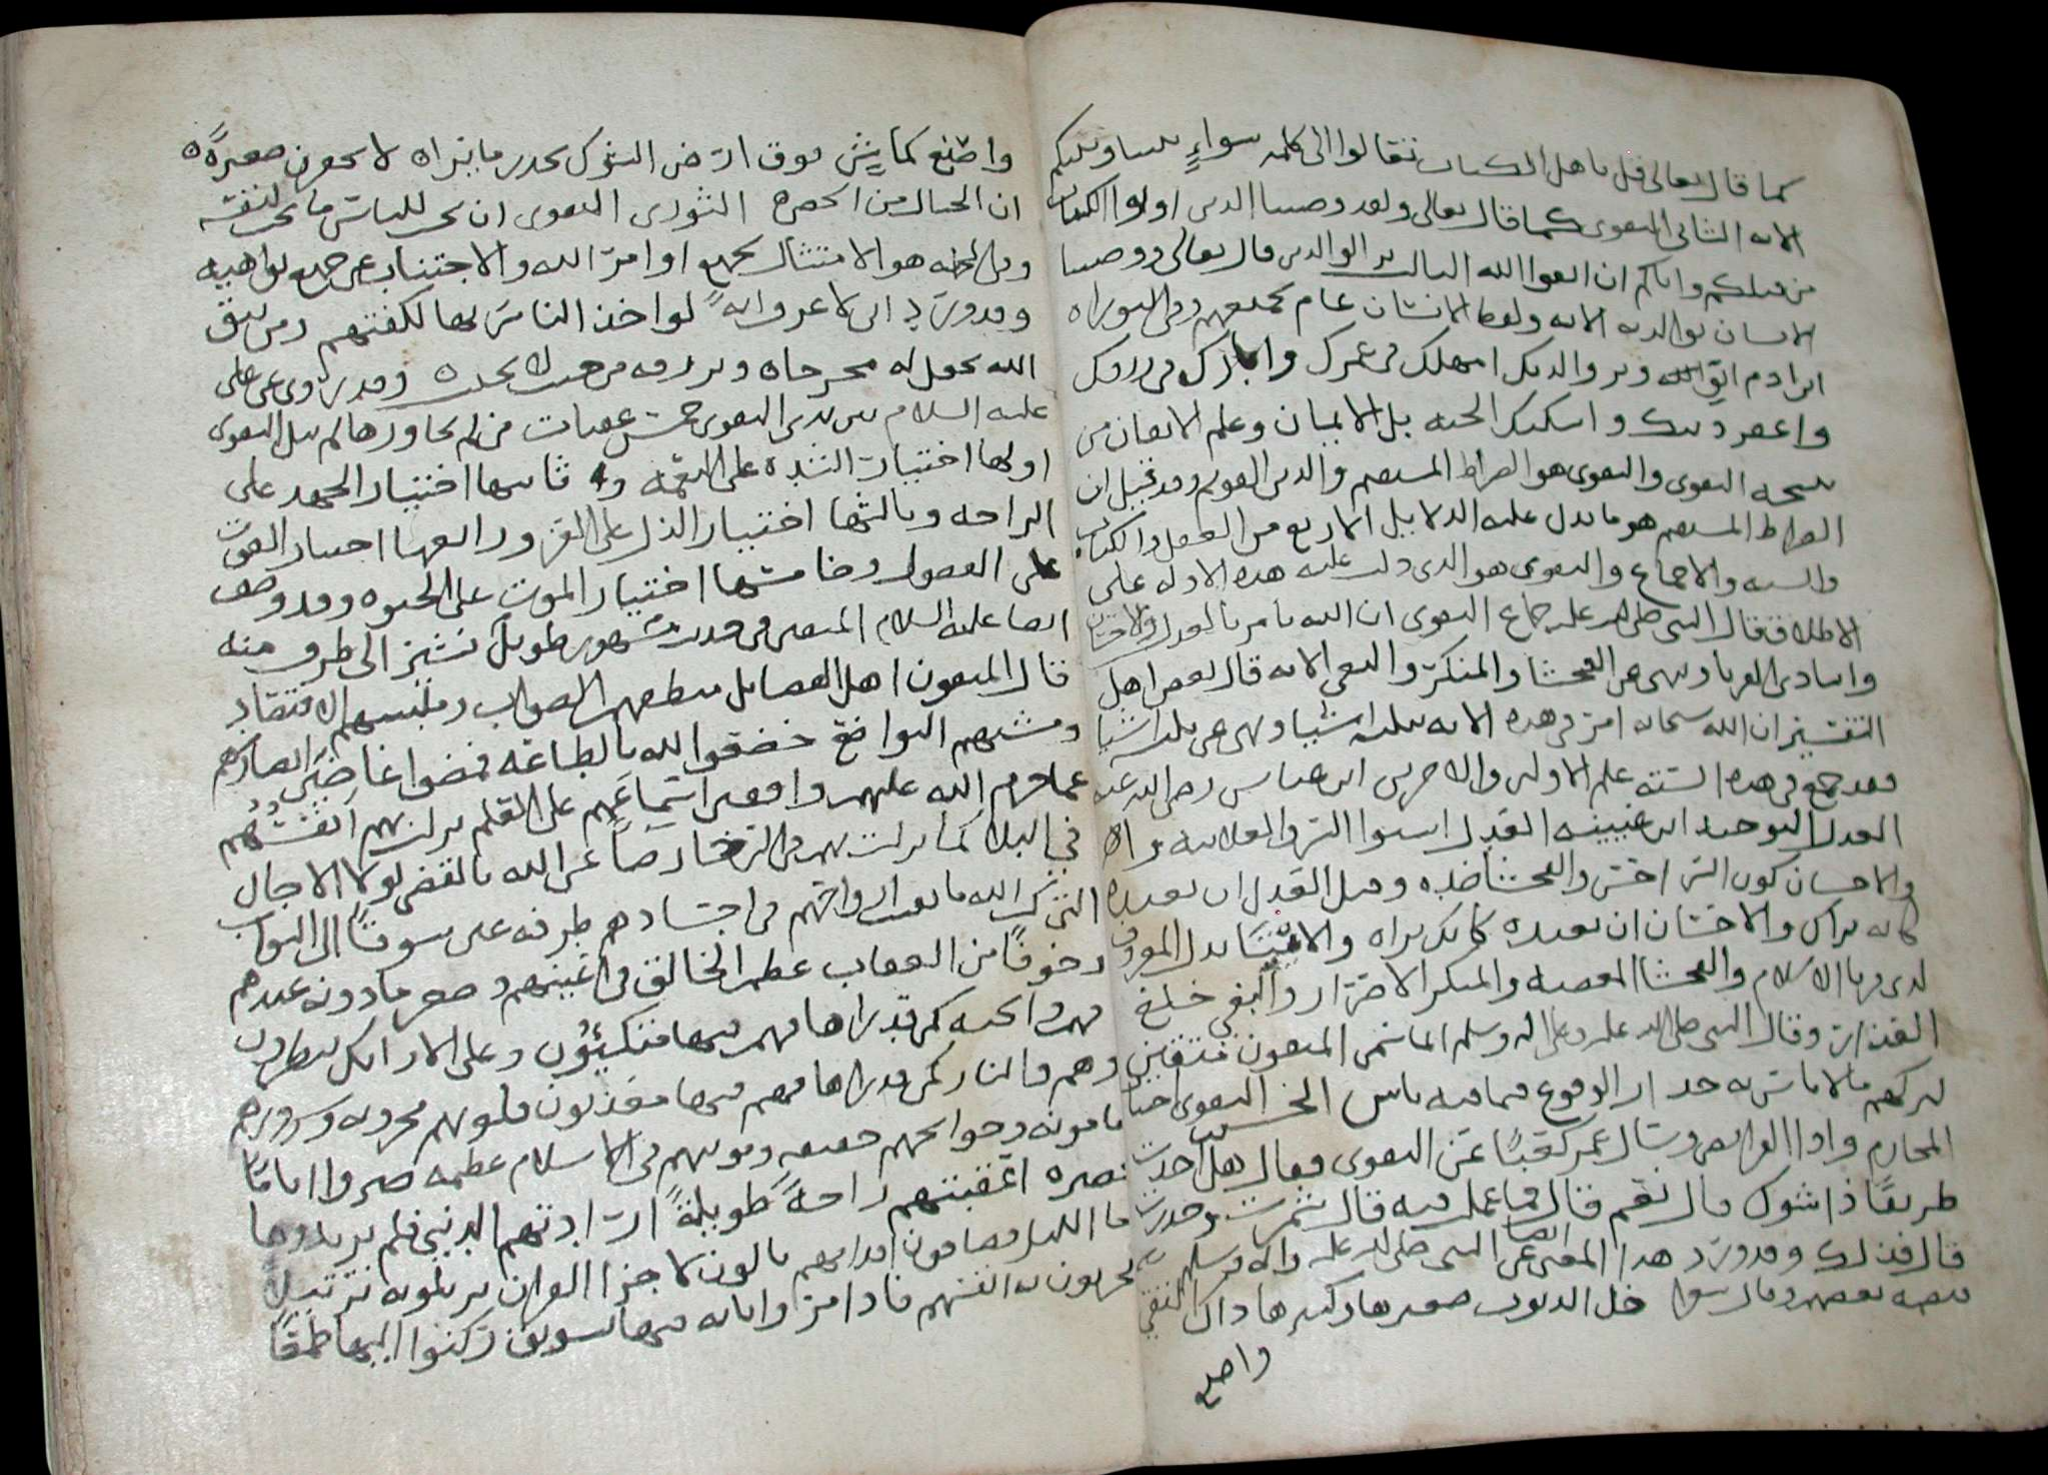 كما قال تعالى قل يا هل الكتاب تعالوا الى كلمه سواءٍ بيننا وبينكم
الايه الثاني التقوى كما قال تعالى ولقد وصينا الذين اوتوا الكتاب
من قبلكم واياكم ان اتقوا الله الثالث بر الوالدين قال تعالى ووصينا
الانسان بوالديه الايه ولفظ الانسان عام لجميعهم وفي التوراه
ابن ادم اتق الله وبر والديك امهلك في عمرك وابارك في رزقك
واغفر ذنبك واسكنك الجنه بل الايمان وعلم الايقان من
نتيجه التقوى والتقوى هو الصراط المستقيم والدين القويم وقد قيل ان
الصراط المستقيم هو ما يدل عليه الدلايل الاربع من العقل والكتاب
والسنه والاجماع والتقوى هو الذي دلت عليه هذه الادله على
الاطلاق فقال النبي صلى الله عليه جماع التقوى ان الله يامر بالعدل والاحسان
وايتاء ذي القربا وينهى عن الفحشا والمنكر والبغي الايه قال بعض اهل
التفسير ان الله سبحانه امر في هذه الايه بثلثه اشيا ونهى عن ثلثه اشيا
فقد جمع في هذه السته علم الاولين والاخرين ابن عباس رضي الله عنه
العدل التوحيد ابن عيينه العدل استوا السر والعلانيه
والاحسان كون السر احسن والفحشا ضده وقيل العدل ان تعبده
كانه يراك والاحسان ان تعبده كانك تراه والايتا بذل المعروف
لذي قربا الاسلام والفحشا المعصيه والمنكر الاضرار والبغي خلع
العذار وقال النبي صلى الله عليه وعلى اله وسلم انما سمي المتقون متقين
لتركهم ما لا باس به حذار الوقوع فيما فيه باس الحسن التقوى اجتناب
المحارم وادا الفرايض وسال عمر كعبًا عن التقوى فقال هل اخذت
طريقًا ذا شوك قال نعم قال فما عملت فيه قال تشمرت وحذرت
قال فذلك وقد ورد هذا المعنى ايضا عن النبي صلى الله عليه واله وسلم
بعضهم وقال شعرا خل الذنوب صغيرها وكبيرها ذاك التقي
واصنع
واصنع كماشٍ فوق ارض الشوك يحذر ما يراه لا تحقرن صغيرةً
ان الجبال من الحصره الثوري التقوى ان تحب للناس ما تحب لنفسه
وقيل هو الامتثال لجميع اوامر الله والاجتناب عن جميع نواهيه
وقد ورد اني لا عرف ايهً لو اخذ الناس بها لكفتهم ومن يتق
الله يجعل له مخرجاه ويرزقه من حيث لا يحتسب وقد روى عن علي
عليه السلام بين يدي التقوى خمس عقبات من لم يجاوزها لم ينل التقوى
اولها اختيار الشده على النعمه و ثانيها اختيار الجهد على
الراحه وثالثها اختيار الذل على العز ورابعها اختيار القوت
على الفضول وخامسها اختيار الموت على الحيوه وقد وصف
ايضا عليه السلام المتقين في حديث مشهور طويل نشير الى طرف منه
قال المتقون اهل الفضايل منطقهم الصواب وملبسهم الاقتصاد
ومشيهم التواضع خضعوا لله بالطاعه فمضوا غاضين ابصارهم
عما حرم الله عليهم واقفين اسماعهم على العلم نزلت بهم انفسهم
في البلا كما نزلت بهم في الرخا رضاً عن الله بالقضى لولا الاجال
التي كتب الله ما تقف ارواحهم في اجسادهم طرفه عين شوقًا الى الثواب
وخوفًا من العقاب عظم الخالق في اعينهم وصغر ما دونه عندهم
فهم والجنه كمن قد راها فهم فيها متكيئون وعلى الارايك ينظرون
وهم والنار كمن قد راها فهم فيها معذبون قلوبهم محزونه وشرورهم
مامونه وحوايجهم خفيفه ومونتهم في الاسلام عظيمه صبروا ايامًا
قصيره اعقبتهم راحةً طويلةً ارادتهم الدنيى فلم يريدوها
اما الليل فصافون اقدامهم تالون لاجزا القران يرتلونه ترتيلاً
يحزنون به انفسهم فاذا مروا بايه فيها تشويق ركنوا اليها طمعًا